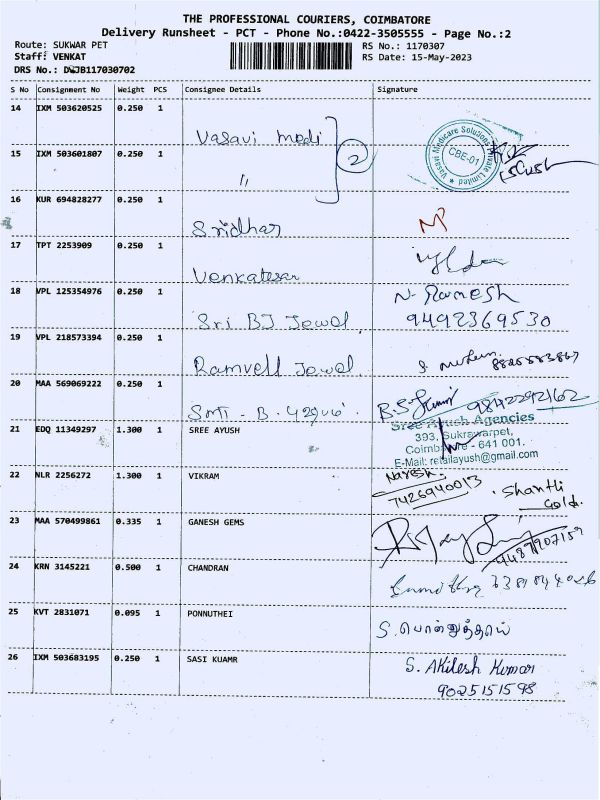 THE PROFESSIONAL COURIERS, COIMBATORE
Delivery Runsheet - PCT - Phone No.:0422-3505555 - Page No.:2
Route: SUKWAR PET
RS No.: 1170307
Staff: VENKAT
RS Date: 15-May-2023
DRS No.: DWJB117030702
S No Consignment No Weight PCS Consignee Details Signature
14 IXM 503620525 0.250 1 Vasavi medi
15 IXM 503601807 0.250 1 〃 2
Vasavi Medicare Solutions Private Limited
CBE-01
16 KUR 694828277 0.250 1 Sridhar
17 TPT 2253909 0.250 1 Venkatesan
18 VPL 125354976 0.250 1 Sri BJ Jewel N. Ramesh
9492369530
19 VPL 218573394 0.250 1 Ramvell Jewel
20 MAA 569069222 0.250 1 Smt - B. 9842292162
21 EDQ 11349297 1.300 1 SREE AYUSH
Sree Ayush Agencies
393, Sukrawarpet,
Coimbatore - 641 001.
E-Mail: retailayush@gmail.com
22 NLR 2256272 1.300 1 VIKRAM Naresh
7426940013 . Shanthi
Gold.
23 MAA 570499861 0.335 1 GANESH GEMS
24 KRN 3145221 0.500 1 CHANDRAN
25 KVT 2831071 0.095 1 PONNUTHEI S. பொன்னுத்தாய்
26 IXM 503683195 0.250 1 SASI KUAMR S. Akilesh Kumar
9025151598